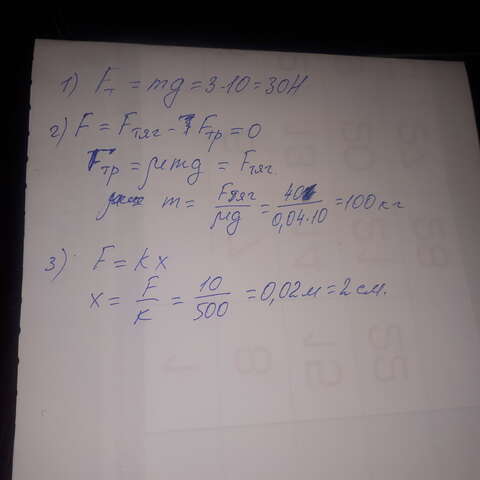 1) Fт = mg = 3·10 = 30Н
2) F = Fтяг - Fтр = 0
Fтр = μmg = Fтяг.
m = Fтяг/μg = 40/0,04·10 = 100кг
3) F = kx
x = F/k = 10/500 = 0,02м = 2см.
1
8
15
22